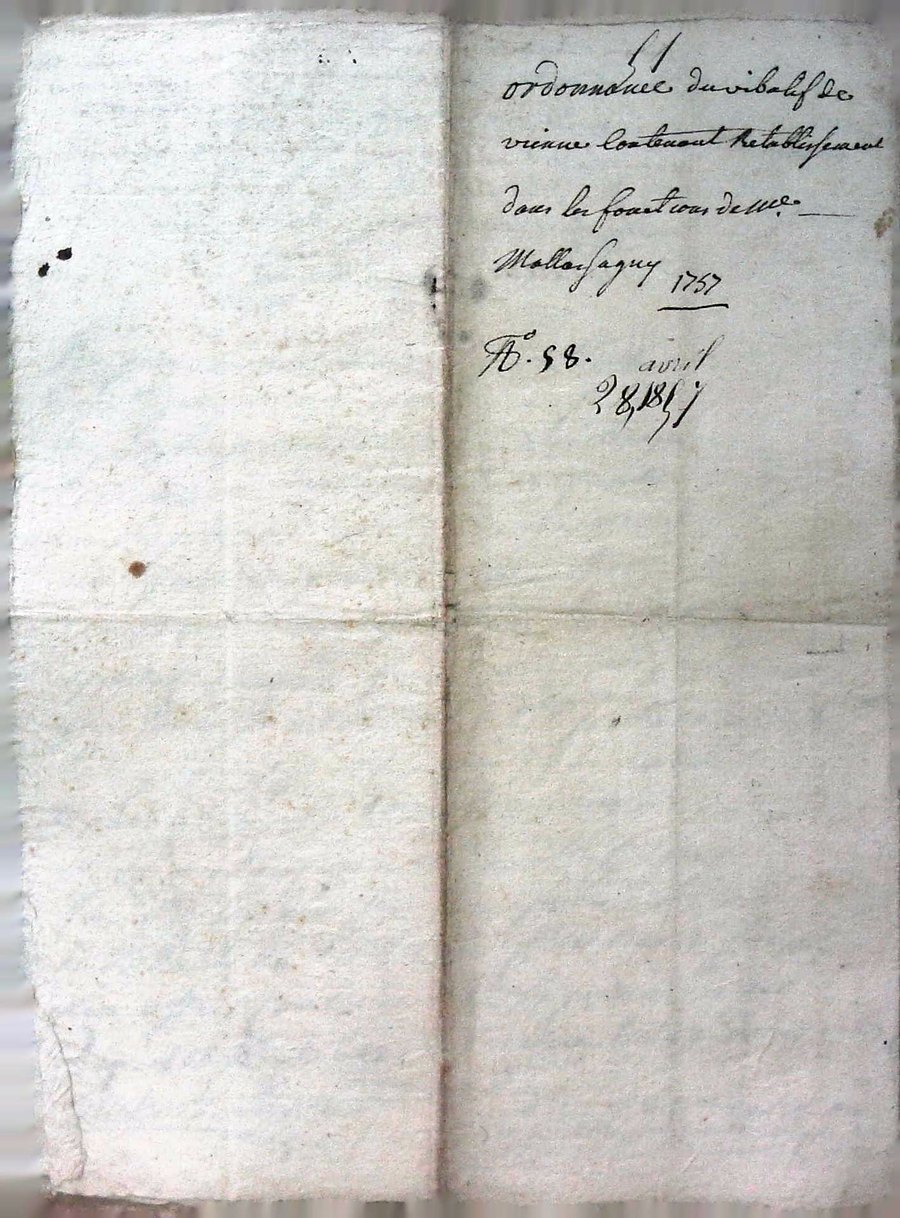 51
ordonnance du vibalif de
vienne Contenant Retablissement
dans les fonctions de me.
1757
No. 58.
avril
28,